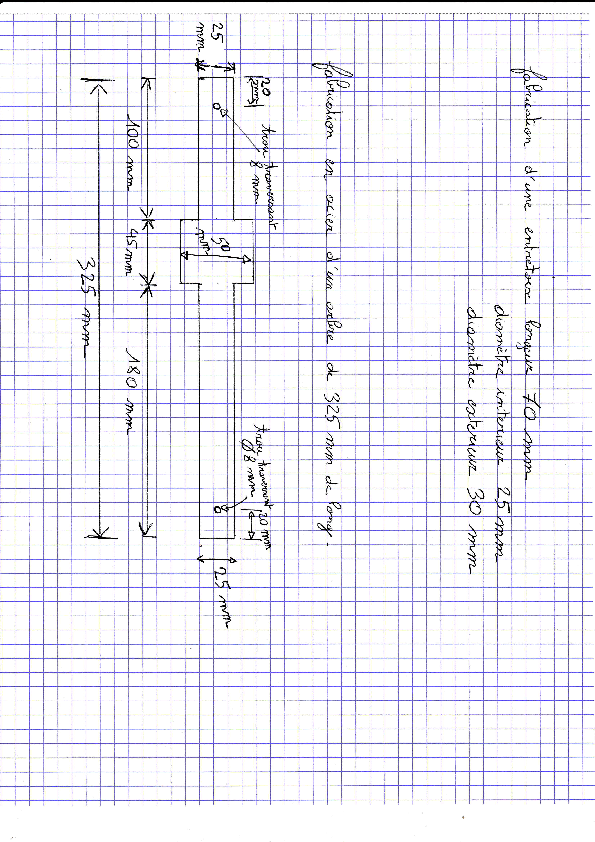 fabrication d'une entretoise longueur 70 mm
diamètre interieur 25 mm
diamètre exterieur 30 mm
fabrication en acier d'un arbre de 325 mm de long.
20
mm
trou traversant
8 mm
trou traversant
Ø 8 mm
20 mm
25
mm
50
mm
25 mm
100 mm
45 mm
180 mm
325 mm